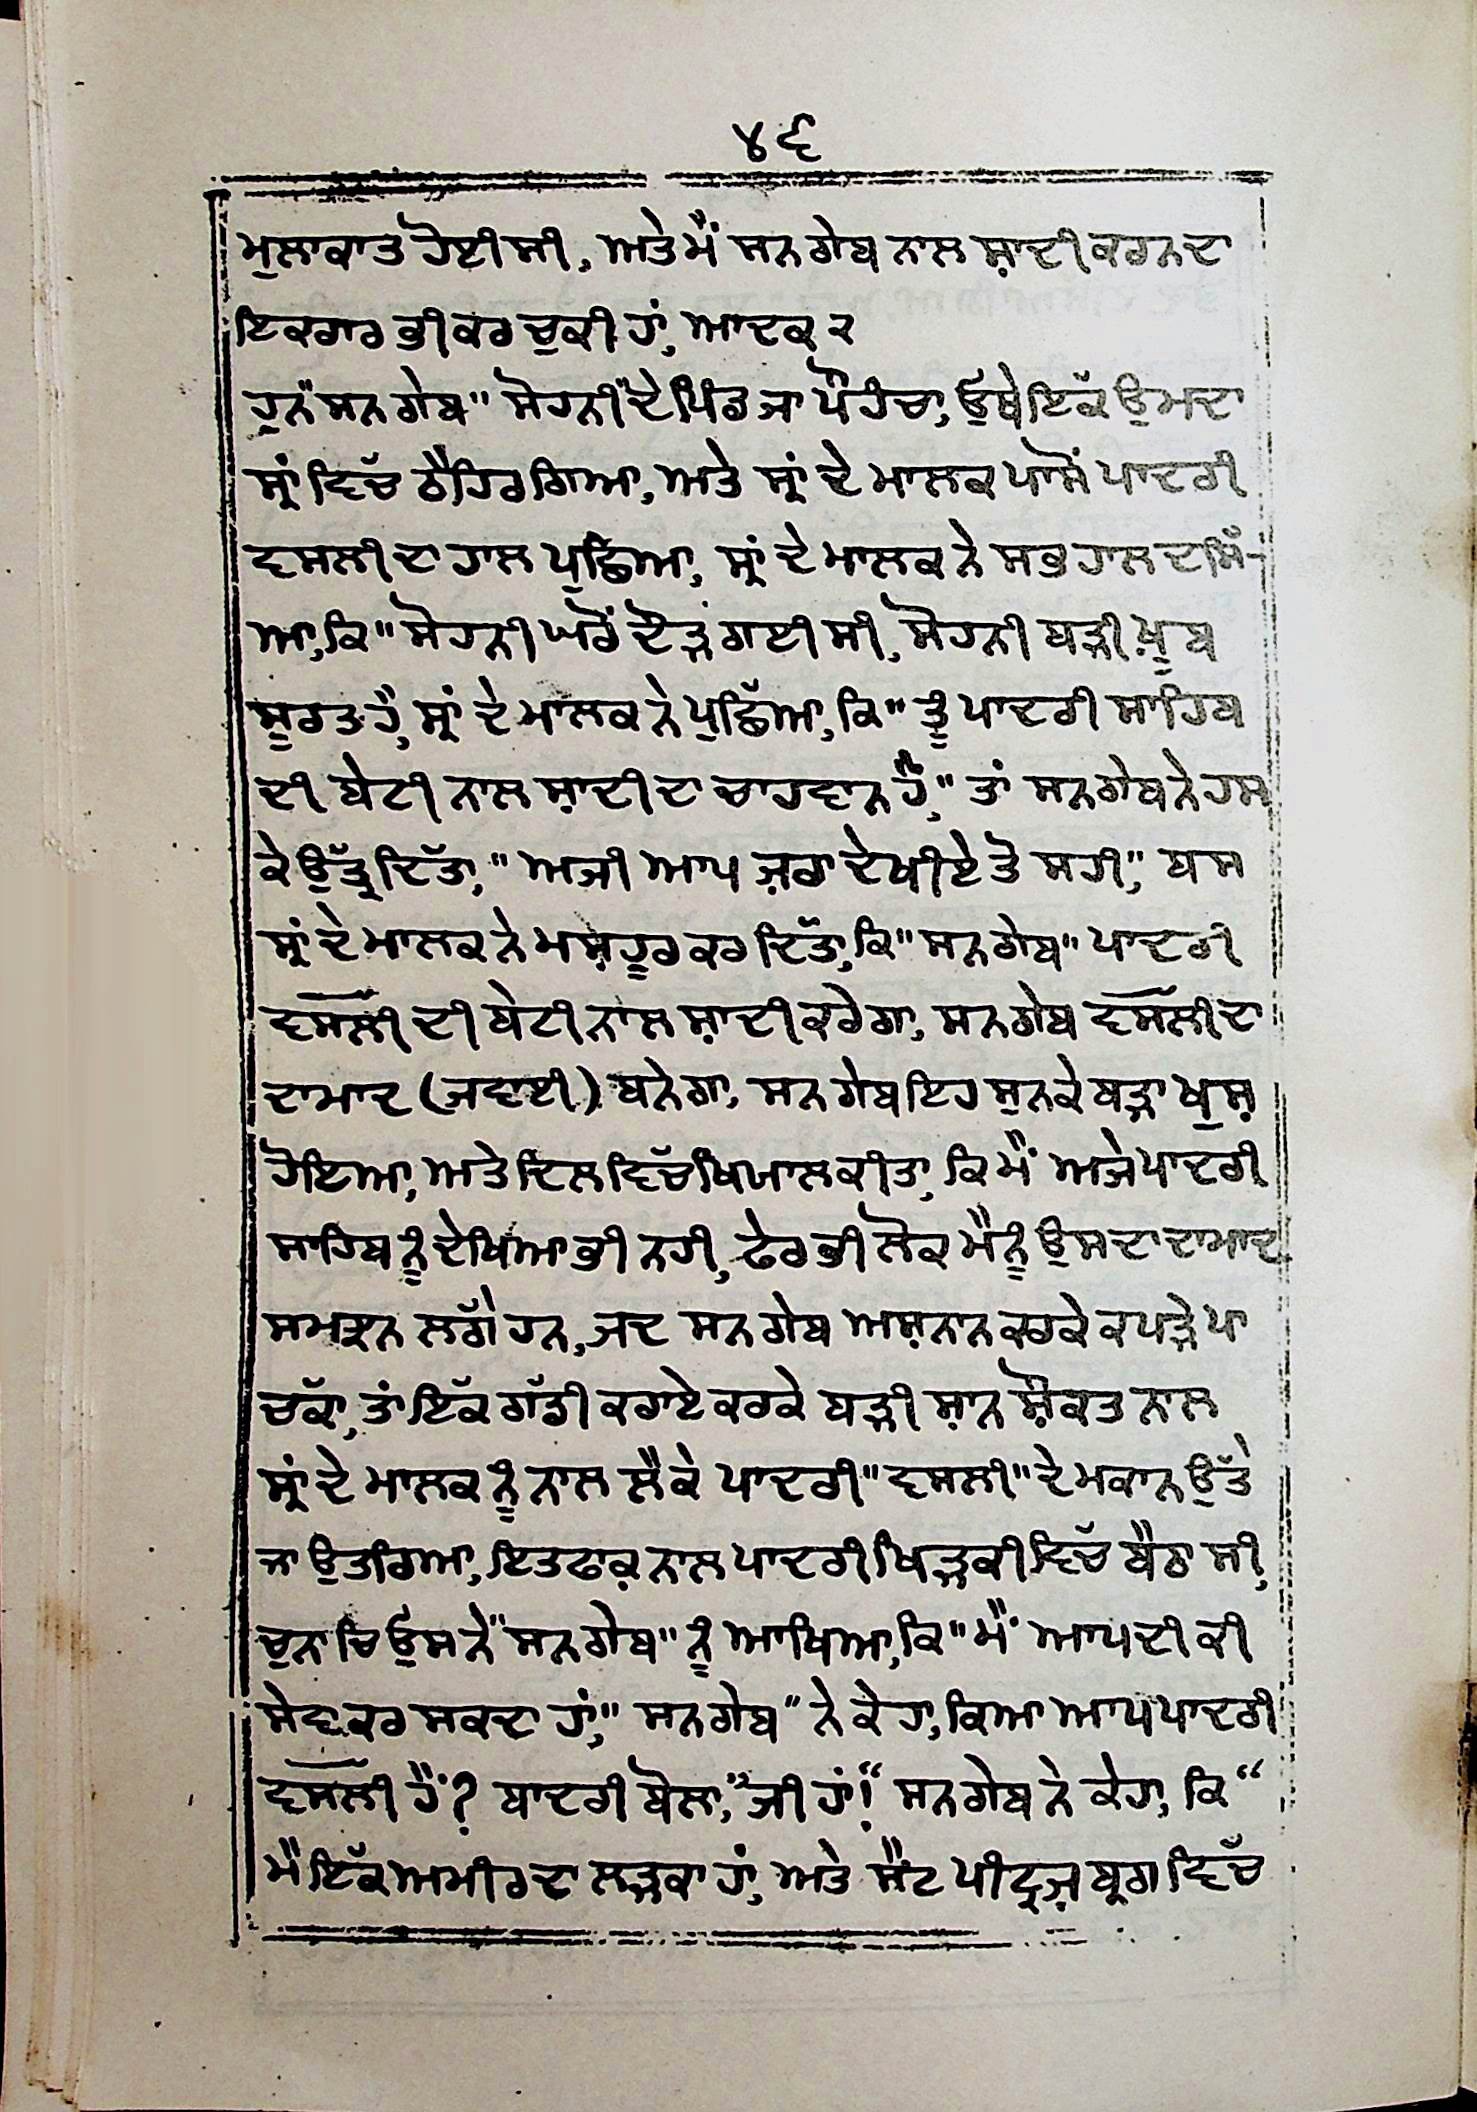 ੪੬
ਮੁਲਾਕਾਤ ਹੋਈ ਸੀ, ਅਤੇ ਮੈਂ ਸਨਗੇਬ ਨਾਲ ਸ਼ਾਦੀ ਕਰਨ ਦਾ
ਇਕਰਾਰ ਭੀ ਕਰ ਚੁਕੀ ਹਾਂ, ਆਦਕ ੨
ਹੁਨ "ਸਨਗੇਬ" ਸੋਹਨੀ ਦੇ ਪਿੰਡ ਜਾ ਪੌਹੰਚਾ, ਓੁਥੇ ਇੱਕ ਓੁਮਦਾ
ਸ੍ਰਾਂ ਵਿੱਚ ਠੈਹਿਰ ਗਿਆ, ਅਤੇ ਸ੍ਰਾਂ ਦੇ ਮਾਲਕ ਪਾਸੋਂ ਪਾਦਰੀ
ਵਸਲੀ ਦਾ ਹਾਲ ਪੁਛਿਆ, ਸ੍ਰਾਂ ਦੇ ਮਾਲਕ ਨੇ ਸਭ ਹਾਲ ਦਸਿੱ-
ਆ, ਕਿ "ਸੋਹਨੀ ਘਰੋਂ ਦੌੜ ਗਈ ਸੀ, ਸੋਹਨੀ ਬੜੀ ਖ਼ੂਬ
ਸੂਰਤ ਹੈ, ਸ੍ਰਾਂ ਦੇ ਮਾਲਕ ਨੇ ਪੁਛਿੱਆ, ਕਿ "ਤੂੰ ਪਾਦਰੀ ਸਾਹਿਬ
ਦੀ ਬੇਟੀ ਨਾਲ ਸ਼ਾਦੀ ਦਾ ਚਾਹਵਾਨ ਹੈਂ," ਤਾਂ ਸਨਗੇਬ ਨੇ ਹਸ
ਕੇ ਉੱਤ੍ਰ ਦਿੱਤਾ, "ਅਜੀ ਆਪ ਜ਼ਰਾ ਦੇਖੀਏ ਤੋ ਸਹੀ," ਬਸ
ਸ੍ਰਾਂ ਦੇ ਮਾਲਕ ਨੇ ਮਸ਼ਹੂਰ ਕਰ ਦਿੱਤਾ, ਕਿ "ਸਨਗੇਬ" ਪਾਦਰੀ
ਵਸਲੀ ਦੀ ਬੇਟੀ ਨਾਲ ਸ਼ਾਦੀ ਕਰੇਗਾ, ਸਨਗੇਬ ਵਸਲੀ ਦਾ
ਦਾਮਾਦ (ਜਵਾਈ) ਬਨੇਗਾ, ਸਨਗੇਬ ਇਹ ਸੁਨਕੇ ਬੜਾ ਖੁਸ਼
ਹੋਇਆ, ਅਤੇ ਦਿਲ ਵਿੱਚ ਖਿਯਾਲ ਕੀਤਾ, ਕਿ ਮੈਂ ਅਜੇ ਪਾਦਰੀ
ਸਾਹਿਬ ਨੂੰ ਦੇਖਿਆ ਭੀ ਨਹੀ, ਫੇਰ ਭੀ ਲੋਕ ਮੈਨੂੰ ਉਸਦਾ ਦਾਮਾਦ
ਸਮਝਨ ਲੱਗੇ ਹਨ, ਜਦ ਸਨਗੇਬ ਅਸ਼ਨਾਨ ਕਰਕੇ ਕਪੜੇ ਪਾ
ਚੱਕਾ, ਤਾਂ ਇੱਕ ਗੱਡੀ ਕਰਾਏ ਕਰਕੇ ਬੜੀ ਸ਼ਾਨ ਸ਼ੌਕਤ ਨਾਲ
ਸ੍ਰਾਂ ਦੇ ਮਾਲਕ ਨੂੰ ਨਾਲ ਲੈਕੇ ਪਾਦਰੀ "ਵਸਲੀ" ਦੇ ਮਕਾਨ ਉੱਤੇ
ਜਾ ਉਤਰਿਆ, ਇਤਫਾਕ਼ ਨਾਲ ਪਾਦਰੀ ਖਿੜਕੀ ਵਿੱਚ ਬੈਠਾ ਸੀ,
ਚੁਨਾਚਿ ਓੁਸਨੇ "ਸਨਗੇਬ" ਨੂੰ ਆਖਿਆ, ਕਿ "ਮੈਂ ਆਪਦੀ ਕੀ
ਸੇਵਾ ਕਰ ਸਕਦਾ ਹਾਂ," ਸਨਗੇਬ" ਨੇ ਕੇਹਾ, ਕਿਆ ਆਪ ਪਾਦਰੀ
ਵਸਲੀ ਹੈਂ? ਬਾਦਰੀ ਬੋਲਾ, "ਜੀ ਹਾਂ!" ਸਨਗੇਬ ਨੇ ਕੇਹਾ, ਕਿ "
ਮੈ ਇੱਕ ਅਮੀਰ ਦਾ ਲੜਕਾ ਹਾਂ, ਅਤੇ ਸੈਂਟ ਪੀਟ੍ਰਜ਼ ਬ੍ਰਗ ਵਿੱਚ